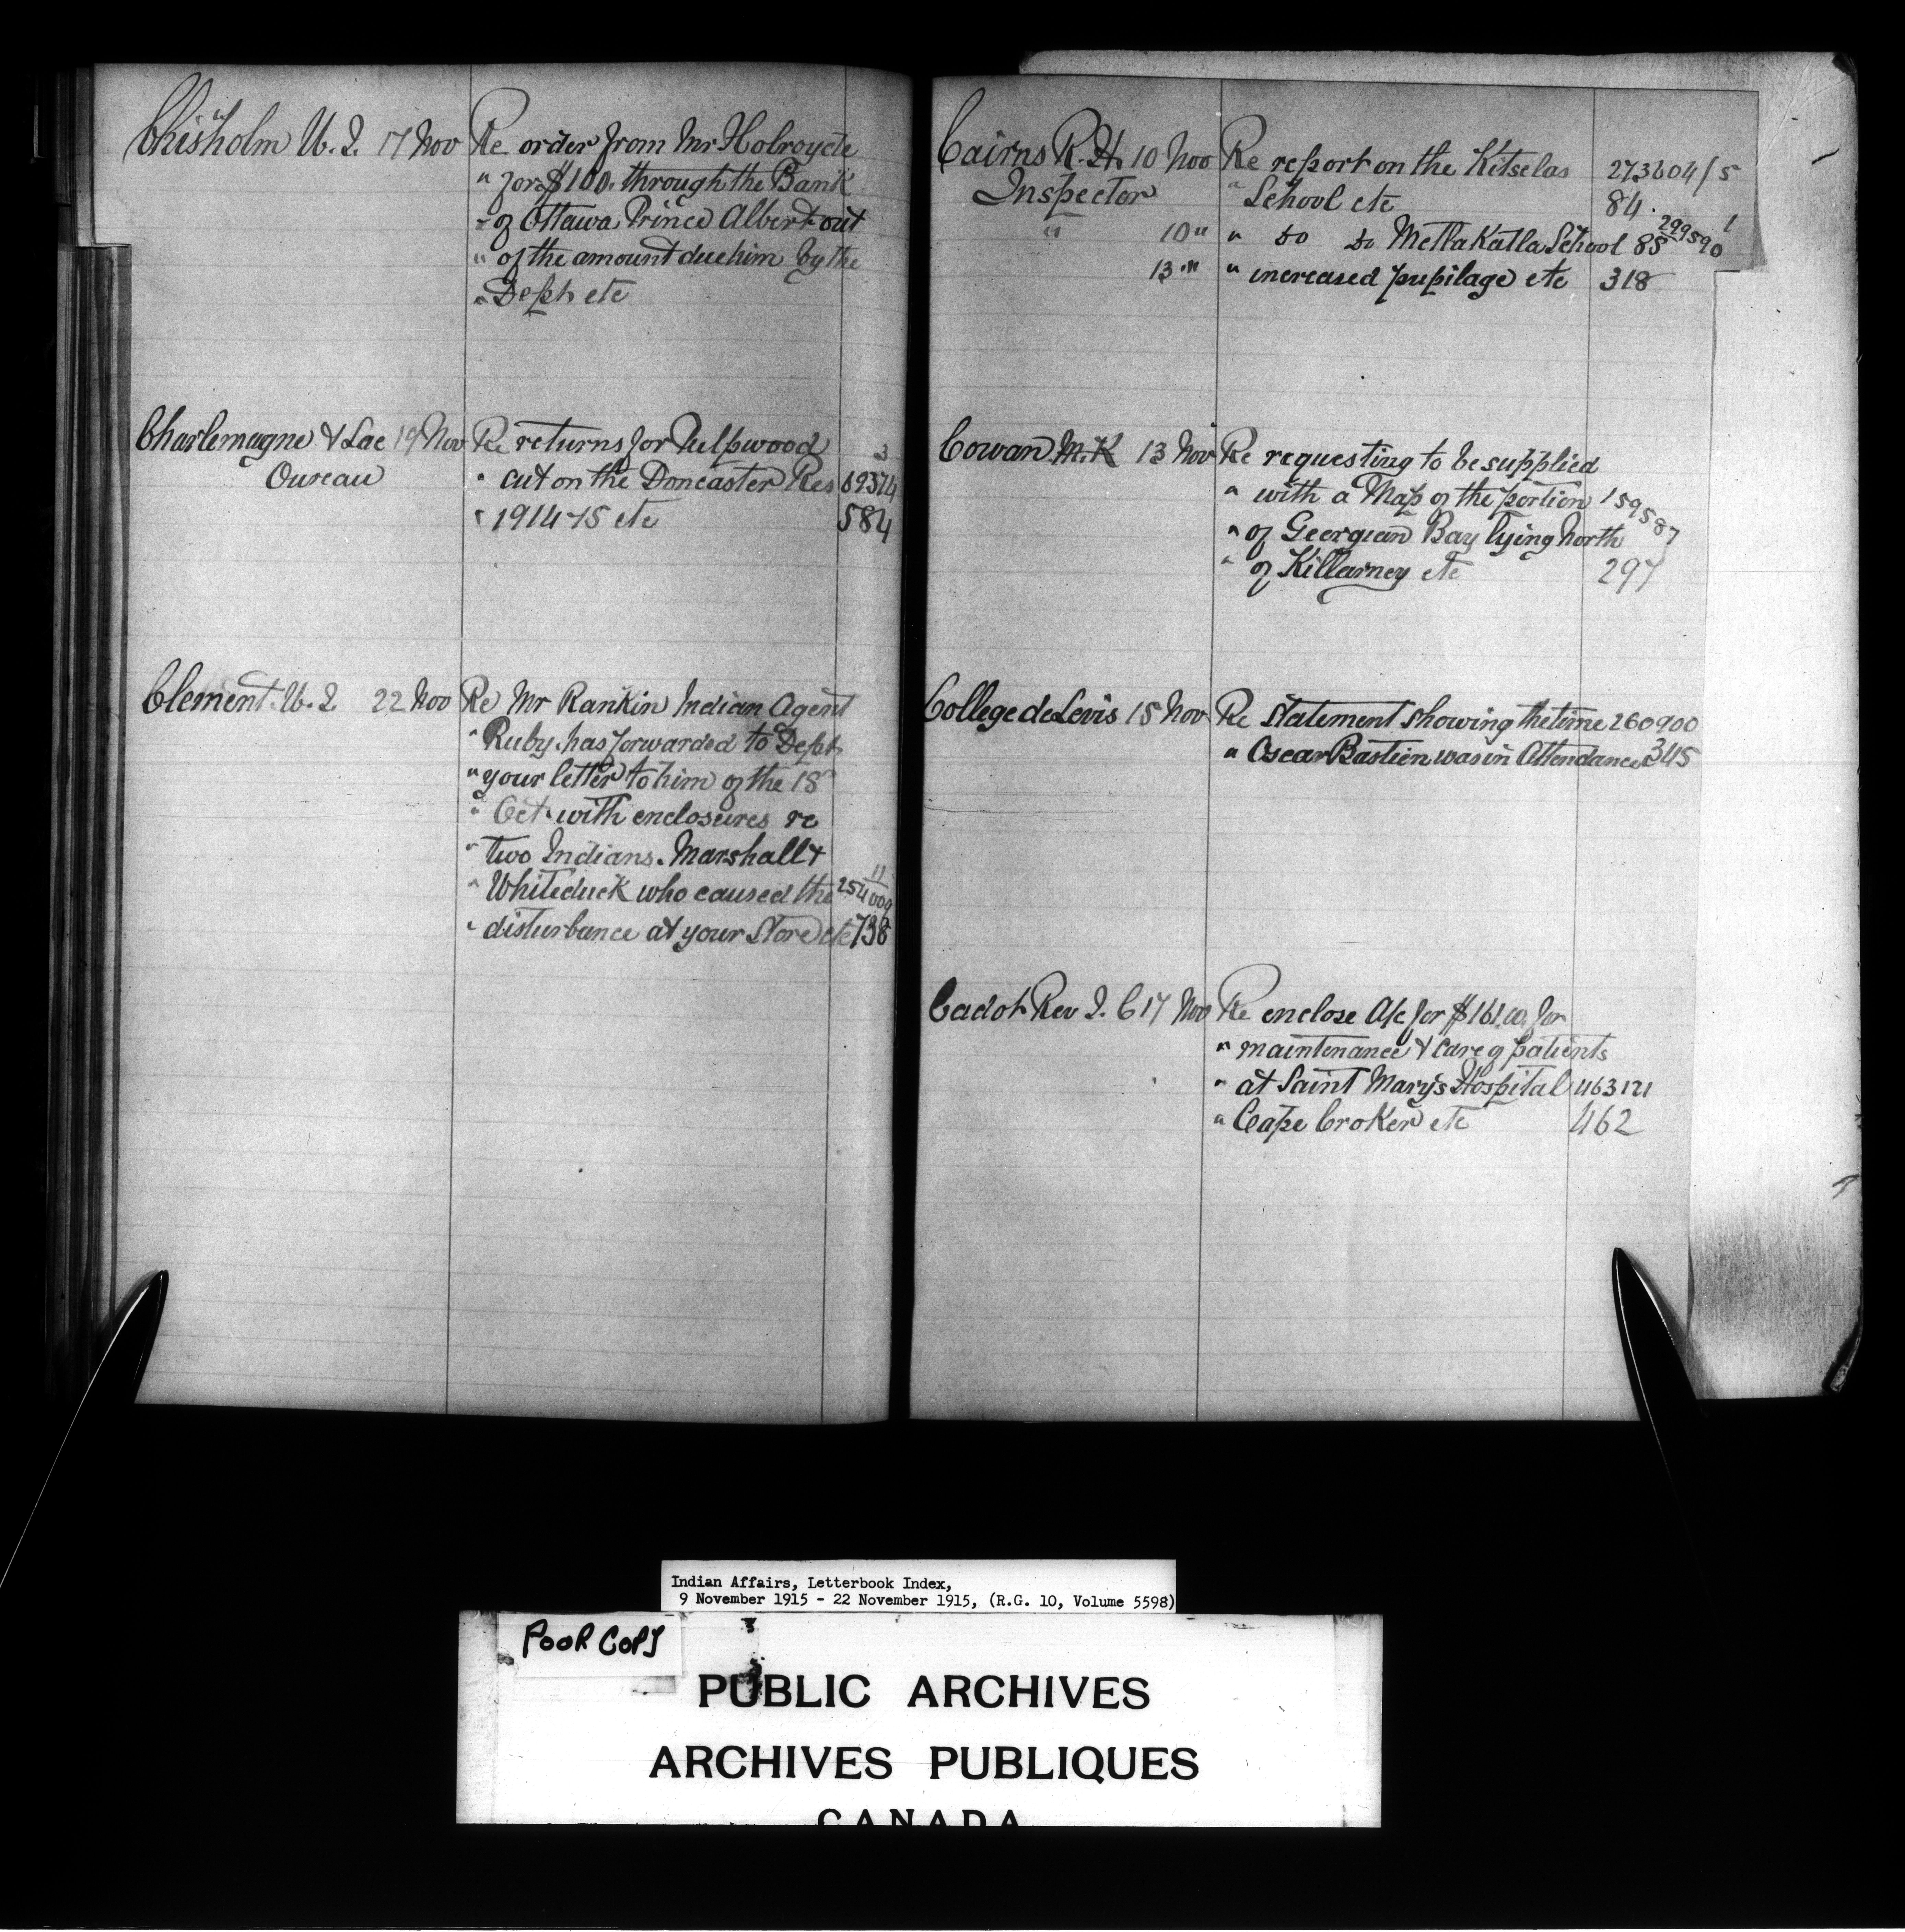 Chisholm W. J. 17 Nov Re order from Mr Holroyde
" for $100. through the Bank
" of Ottawa Prince Albert out
" of the amount due him by the
" Dept etc
Charlemagne & Lac 19 Nov Re returns for Pulpwood 3
Oureau " cut on the Doncaster Res 59374
" 1914-15 etc 584
Clement. W. J. 22 Nov Re Mr Rankin Indian Agent
" Ruby. has forwarded to Dept
" your letter to him of the 18
" Oct. with enclosures re
" two Indians. Marshall &
" Whiteduck who caused the 254009 11
" disturbance at your Store etc 738
Cairns R. H. 10 Nov Re report on the Kitselas 273604/5
Inspector " School etc 84.
" 10 " " do do Metlakatla School 85 299590 1
13 " " increased pupilage etc 318
Cowan M. K 13 Nov Re requesting to be supplied
" with a Map of the portion 159587
" of Georgian Bay lying North
" of Killarney etc 297
College de Levis 15 Nov Re Statement showing the time 260900
" Oscar Bastien was in Attendance 345
Cadot Rev J. C 17 Nov Re enclose A/c for $161.00 for
" maintenance & care of patients
" at Saint Mary's Hospital 463121
" Cape Croker etc 462
Indian Affairs, Letterbook Index,
9 November 1915 - 22 November 1915, (R.G. 10, Volume 5598)
POOR COPY
PUBLIC ARCHIVES
ARCHIVES PUBLIQUES
CANADA